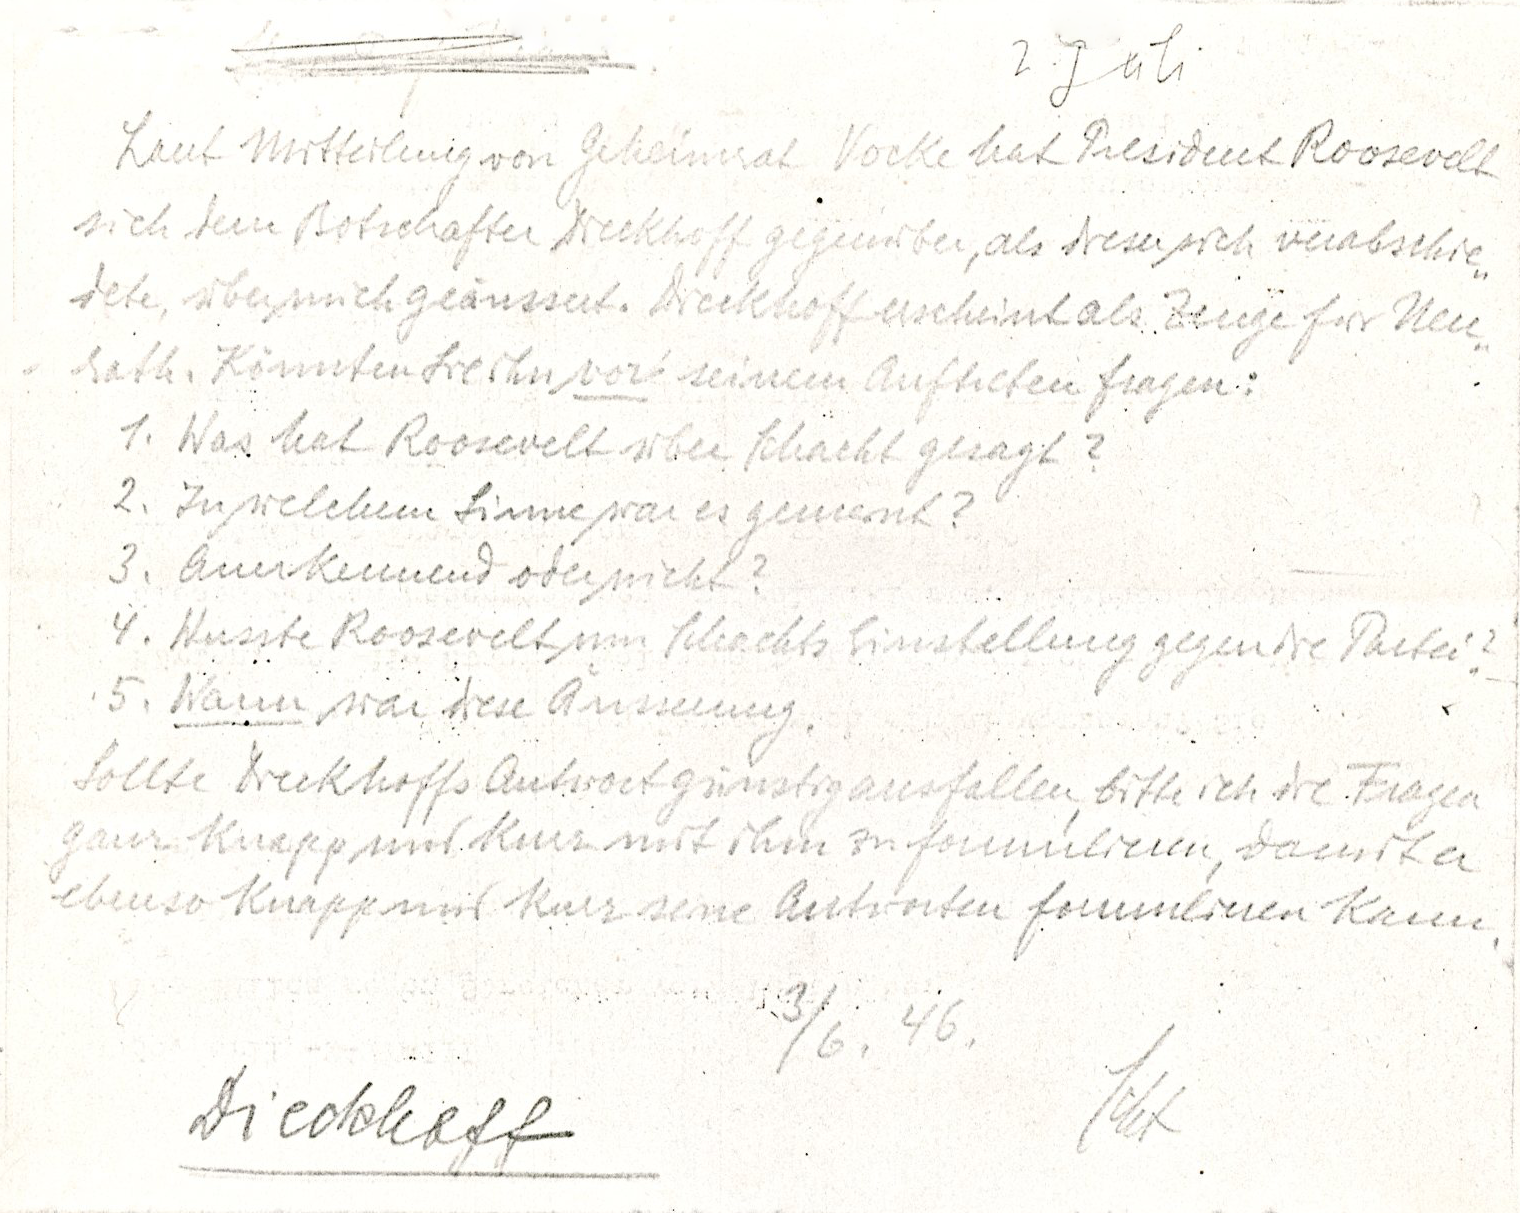 2 Juli
Laut Mitteilung von Geheimrat Vocke hat President Roosevelt
sich dem Botschafter Dieckhoff gegenüber, als dieser sich verabschie„
dete, über mich geäussert. Dieckhoff erscheint als Zeuge für Neu„
rath. Könnten Sie ihn vor seinem Auftreten fragen:
1. Was hat Roosevelt über Schacht gesagt?
2. In welchem Sinne war es gemeint?
3. Anerkennend oder nicht?
4. Wusste Roosevelt um Schachts Einstellung gegen die Partei?
5. Wann war diese Äusserung.
Sollte Dieckhoffs Antwort günstig ausfallen, bitte ich die Fragen
ganz knapp und kurz mit ihm zu formulieren, damit er
ebenso knapp und kurz seine Antworten formulieren kann.
3/6. 46.
Dieckhoff